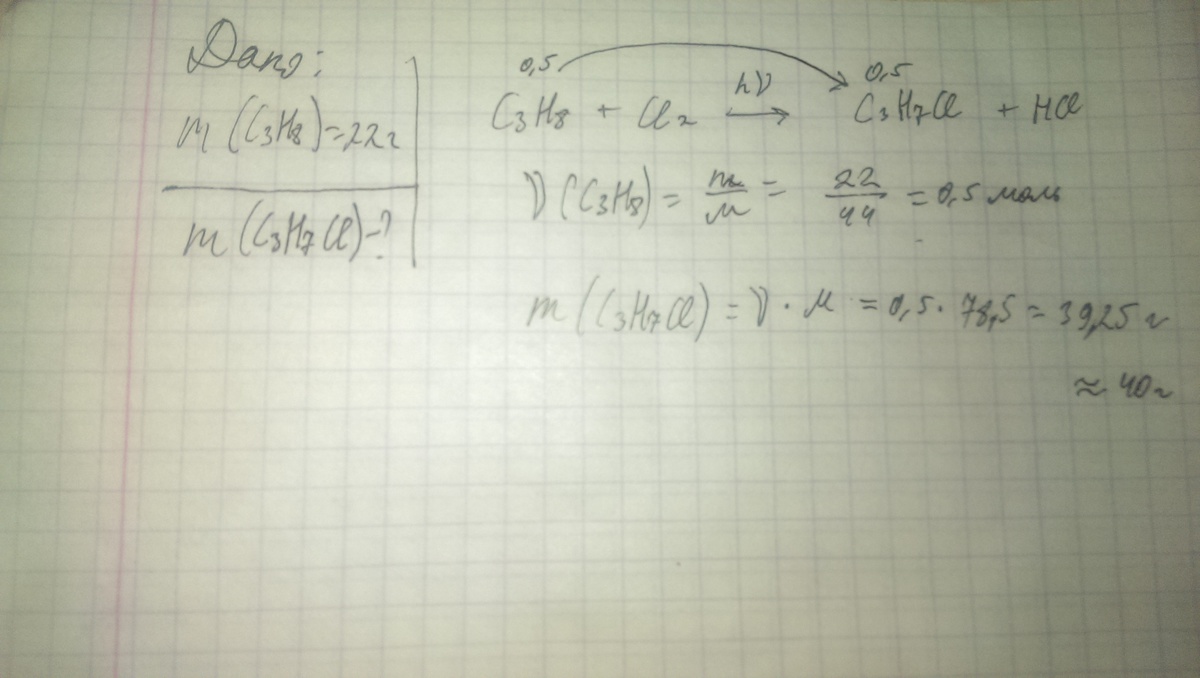 Дано:
m(C₃H₈)=22г
m(C₃H₇Cl)-?
0,5 0,5
C₃H₈ + Cl₂ hν→ C₃H₇Cl + HCl
ν(C₃H₈) = m/M = 22/44 = 0,5 моль
m(C₃H₇Cl) = ν · M = 0,5 · 78,5 = 39,25 г
≈ 40г